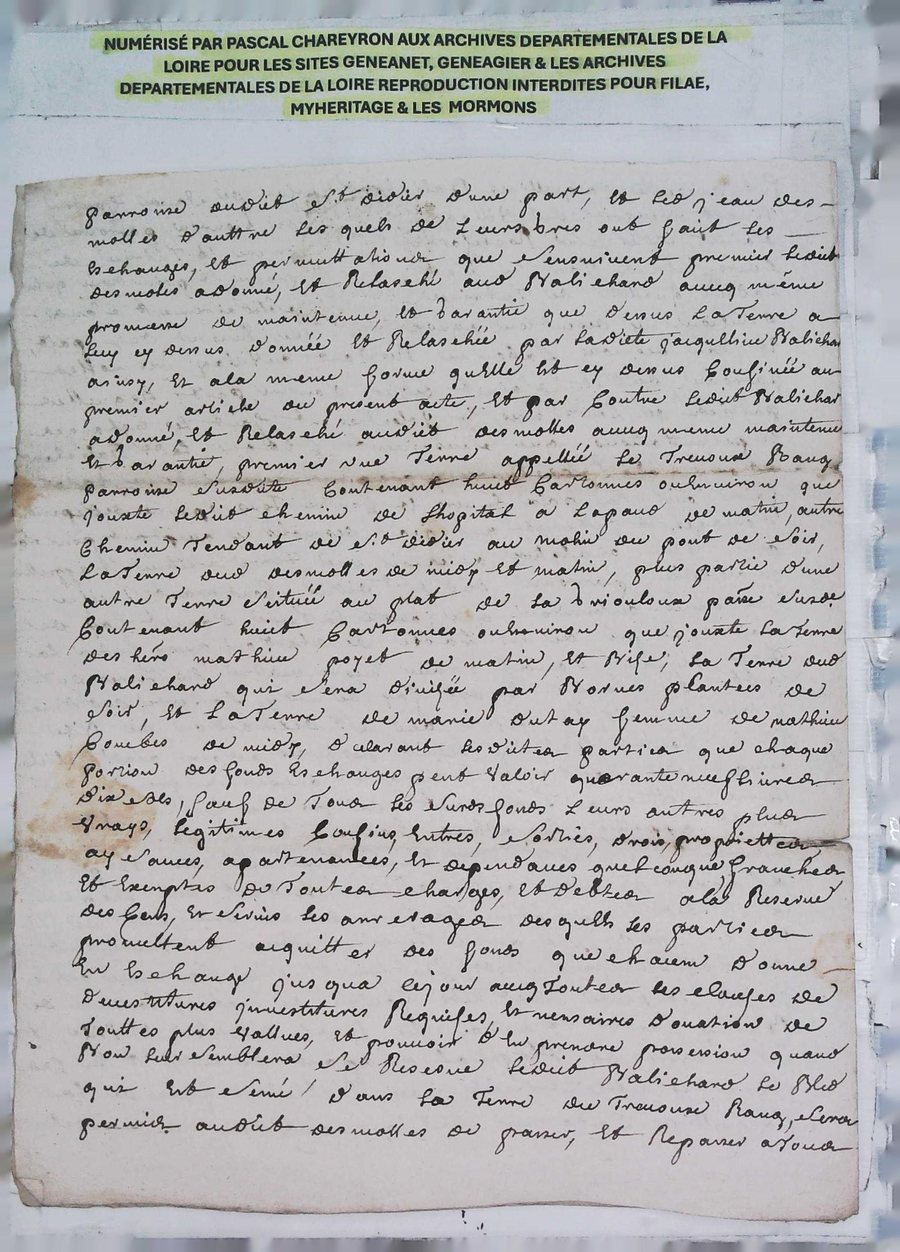 NUMÉRISÉ PAR PASCAL CHAREYRON AUX ARCHIVES DEPARTEMENTALES DE LA
LOIRE POUR LES SITES GENEANET, GENEAGIER & LES ARCHIVES
DEPARTEMENTALES DE LA LOIRE REPRODUCTION INTERDITES POUR FILAE,
MYHERITAGE & LES MORMONS
parroise dudit St didier d'une part, Et led jean des-
molles d'auttre les quels de Leurs bres ont fait les
Eschanges, Et permuttationes que s'ensuivent premier ledit
desmoles adonné, Et Relasché aud Valichard aucq même
promesse de maintenue, Et garantie que dessus La Terre a
Luy cy dessus donnée Et Relaschée par Ladicte jacquelline Valichar
ainsy, Et ala meme forme quelle Est cy dessus Confinée au
premier article du present acte, Et par Contre Ledit Valichar
adonné, Et Relasché audict desmolles aucq meme maintenue
Et Garantie, premier une Terre appellée Le Treuoux Rang
parroise susdite Contenant huict Cartonnes ouenuiron que
jouxte Ledit chemin de Lhopital a Lapaud de matin, autre
Chemin Tendant de St didier au molin du pont de soir,
La Terre dud desmolles de midy Et matin, plus partie d'une
autre Terre scituée au plat de La briouloux paise susde
Contenant huict Cartonnes ouenuiron que jouxte La Terre
des héro mathieu poyet de matin, Et bise, La Terre dud
Valichard qui sera divisée par Bornes plantees de
soir, Et La Terre de marie dutay femme de mathieu
Combes de midy, d'clarant Lesdictes parties que chaque
portion des fonds Eschanges peut valoir quarante neuf Liures
dix sols, sauf de Tous Les sures fonds Leurs autres plus
Vrays, Légitimes Confins, Entres, sorties, drois, propriettes
aysances, apartenances, Et dependances quelconques, franches
Et Exemptes de Touttes charges, Et debtes ala Reserve
des Cens, Et seruis Les arrerages desquells Les parties
promettent acquitter des fonds que chacun donne
En Eschange jusqua cejour aucq Touttes Les clauses de
deuestitures jnuestitures Requises, Et nensaires donation de
Touttes plus vallues, Et pouvoir d'En prendre possession quand
Bon Leur semblera se Reserve Ledit Valichard Le Bled
qui Est semé dans La Terre du Treuoux Rang, sera
permis audit desmolles de passer, Et Repasser atous